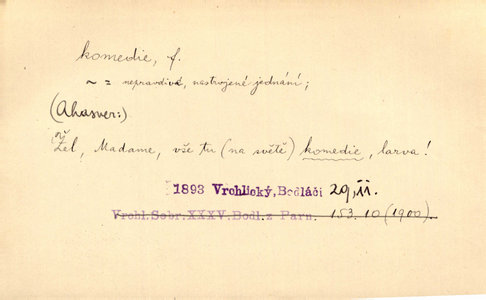 komedie, f.
~ = nepravdivé, nastrojené jednání;
(Ahasver:)
Žel, Madame, vše tu (na světě) komedie, larva!
1893 Vrchlický, Bodláčí 29, II.
Vrchl. Sebr. XXXV. Bodl. z Parn. 153, 10 (1900).